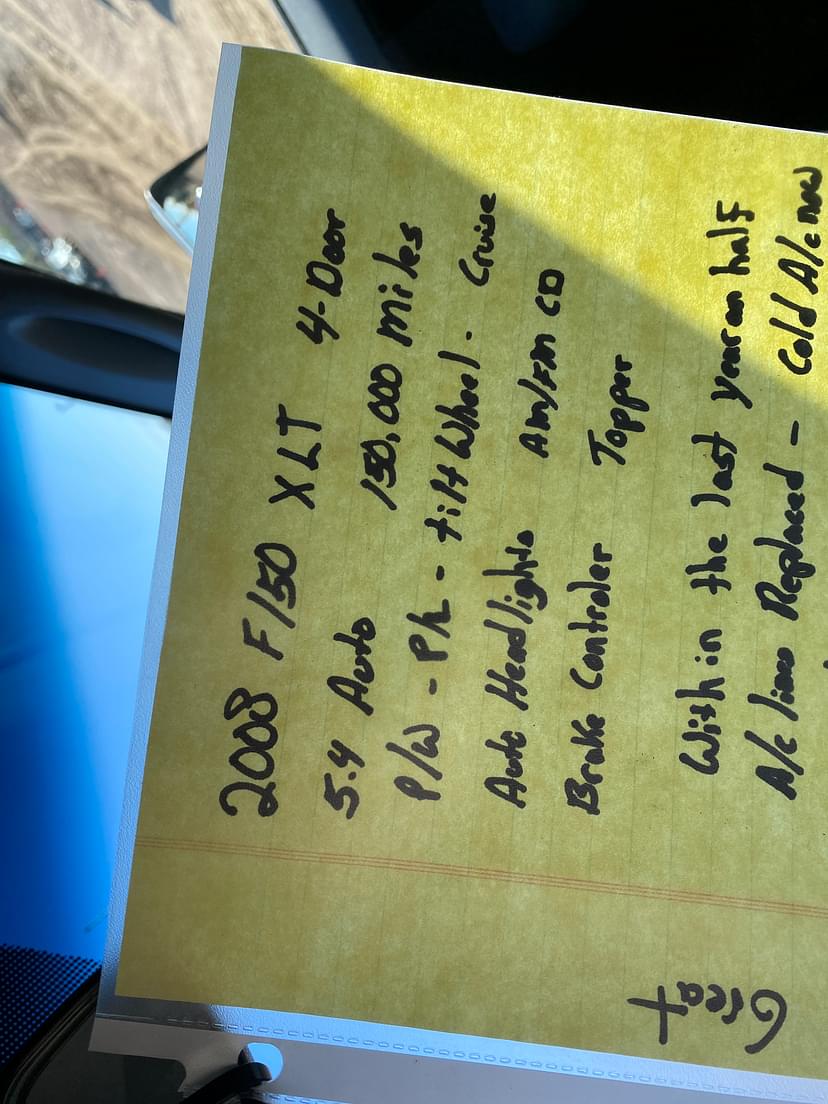 2008 F150 XLT 4-Door
5.4 Auto 150,000 miles
P/W - P/L - tilt Wheel - Cruise
Auto Headlights Am/Fm CD
Brake Controler Topper
Within the last year an half
A/c lines Replaced - Cold A/c now
Great